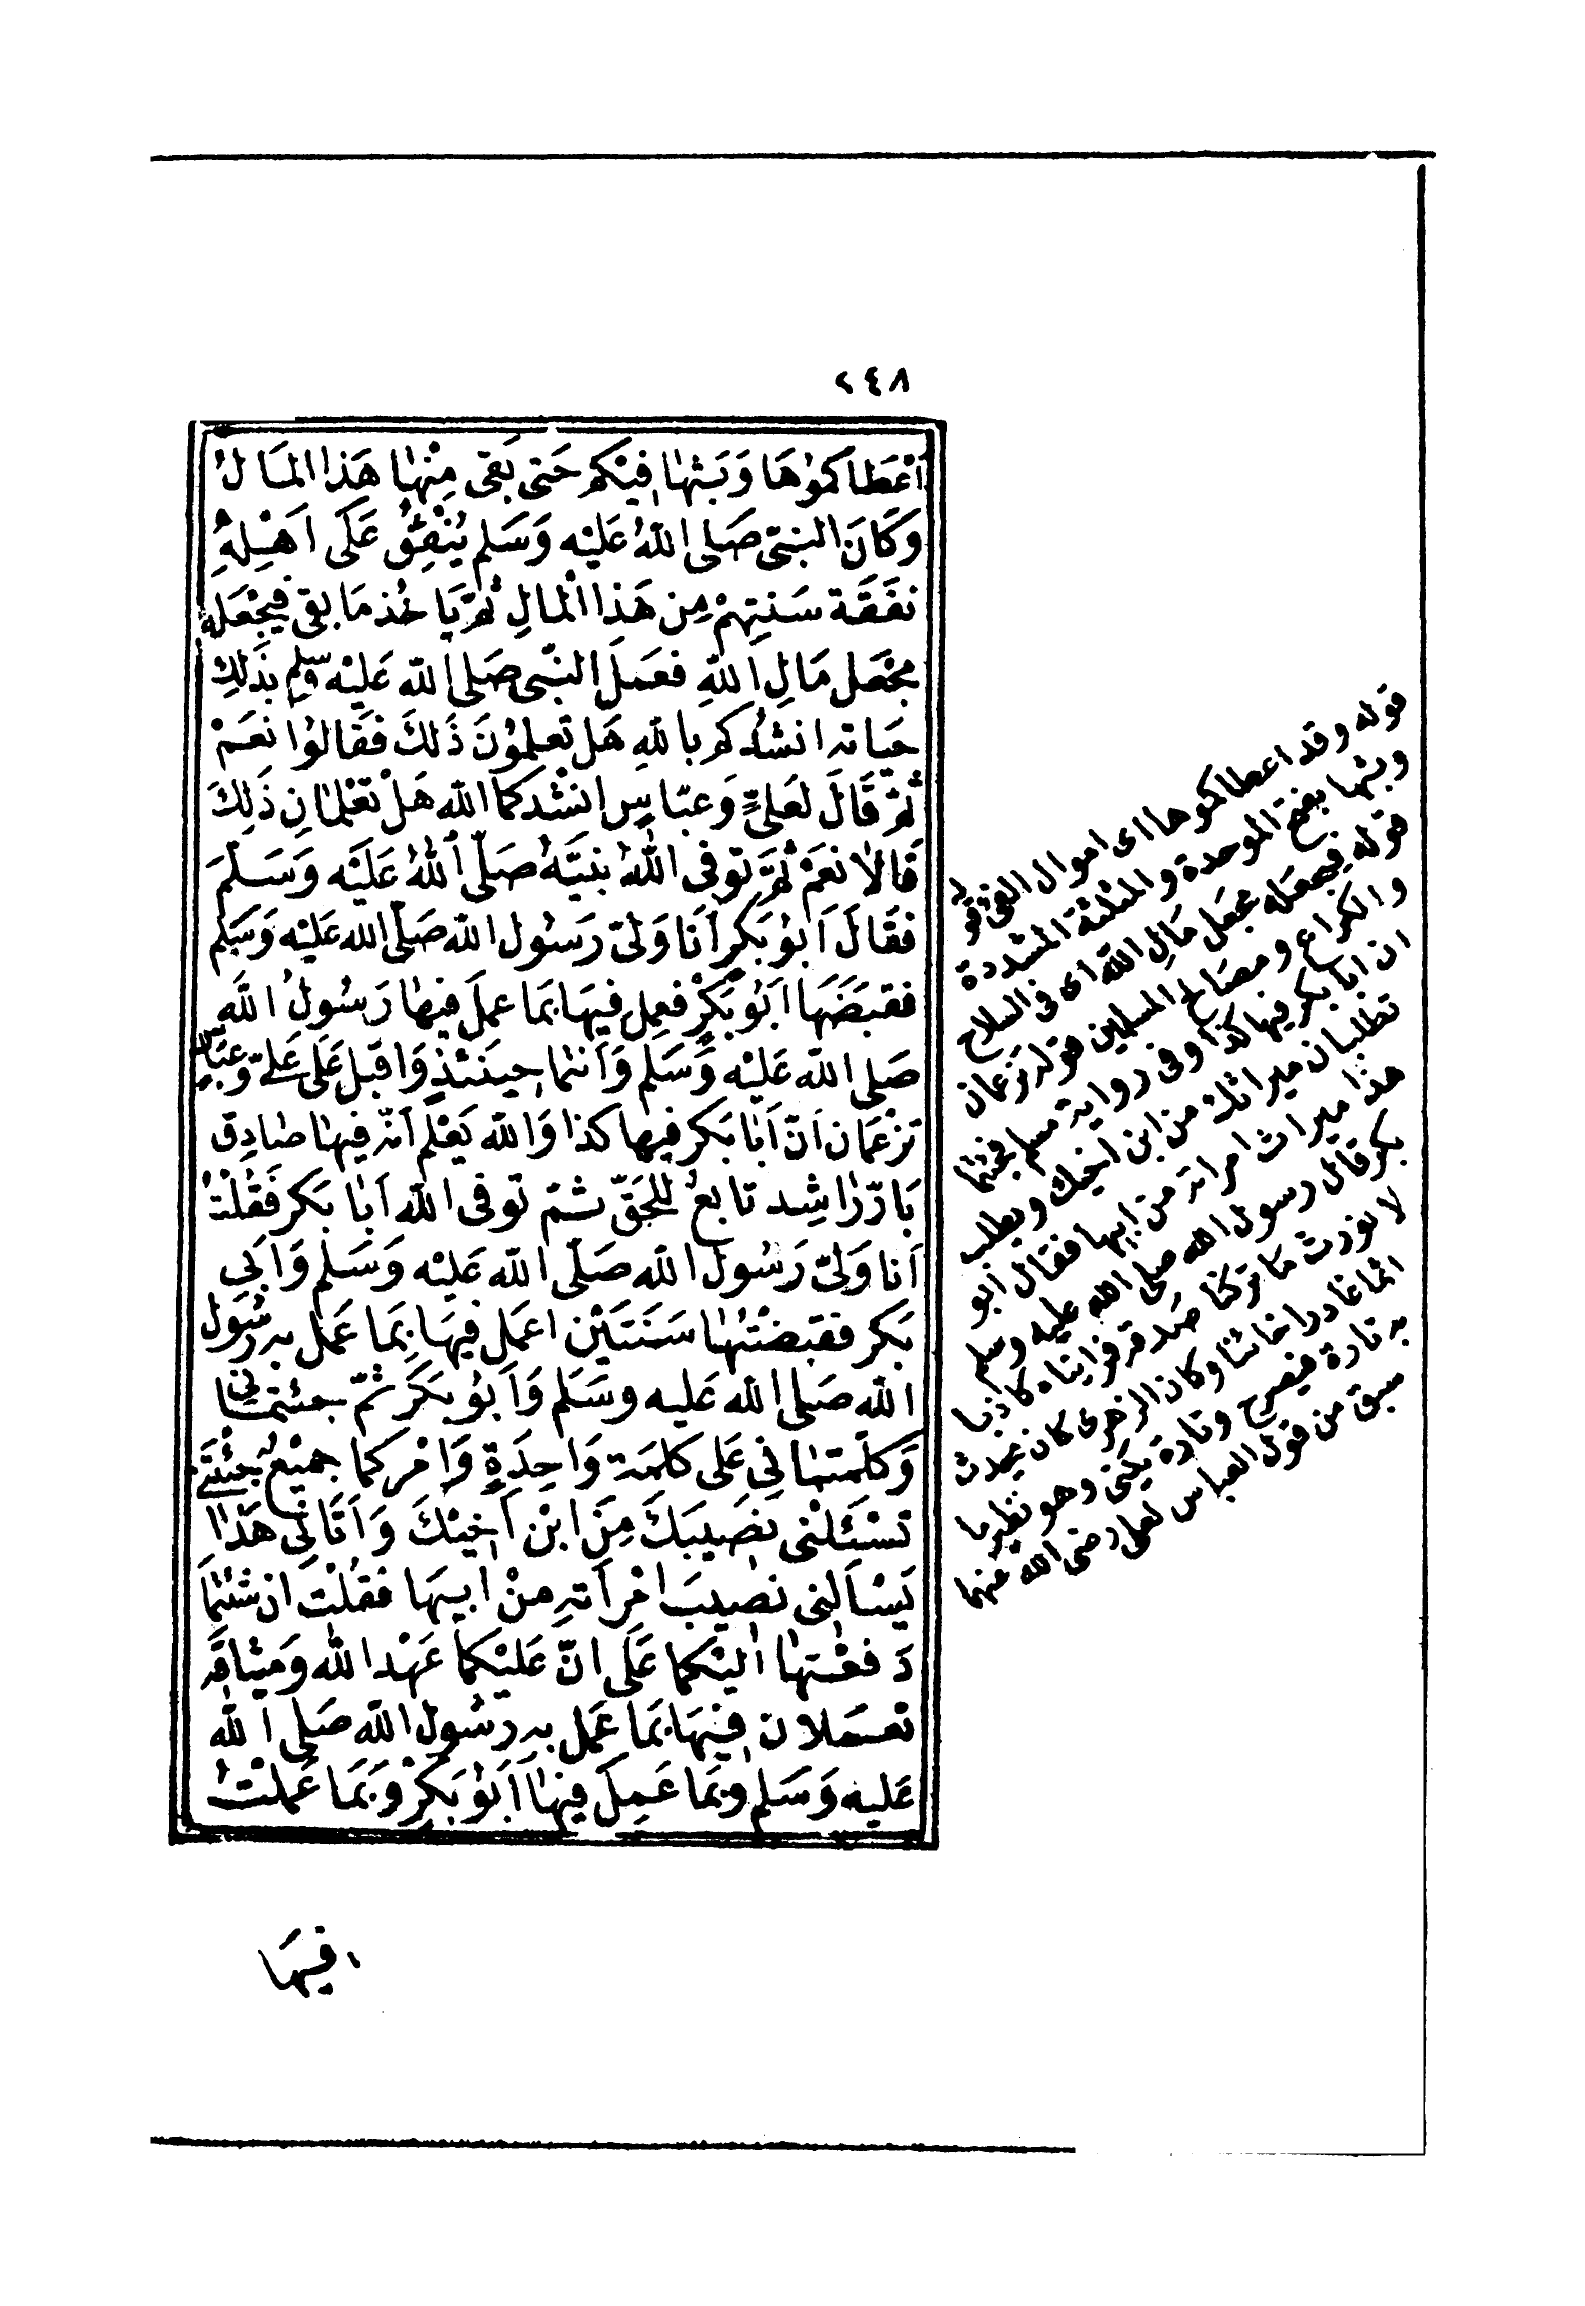 ٢٤٨
اَعْطَاكمُوٰهَا وَبَثهَٰا فِيْكمْ حَتى بَقى مِنْهٰا هَذا المَال
وَكَانَ النبىّ صَلى اللّٰهُ عَليْه وَسَلم يُنْفِقُ عَلَى اَهْلِهِ
نفَقَة سَنتِهِمْ مِن هَذا الْمالِ ثمّ يَاخُذ مَا بقى فيجْعَله
مجْعَل مَالِ اللّهِ فعَمَلَ النبّى صَلى اللّه عَليْه وسلم بذَلِكِ
حيَاته انشُدكم باللّهِ هَل تعلموُنَ ذَلكَ فقَالوُا نعَمْ
ثمّ قَالَ لعَلىٍّ وَعبّاسٍ انشْدكمَا اللّه هَلْ تعْلمٰانِ ذَلِكَ
قالاٰ نعَمْ ثمَّ توفى اللّٰهُ نبيَّهُ صَلّى اللّٰهُ عَليْه وَسَلّمَ
فقَالَ اَبوُ بَكرٍ اَنَا وَلىّ رَسُول اللّه صَلّى اللّه عَليْه وَسَلم
فقبَضَهَا اَبوُ بَكرْ فعمِل فيهَا بمَا عمِلَ فيهٰا رَسُولُ اللّهِ
صَلى اللّه عَليْه وَسَلم وَاَنتمٰا حِينَئذٍ وَاقبَل عَلَى عَلىّ وَعبّاسٍ
تزعمَان اَنّ اَبٰا بَكر فيها كذا وَاللّه يَعْلم اَنّه فيهَا صٰادِق
بَارّ رٰاشِد تابعٌ للحَقّ ثمّ توفى اللّه اَبَا بَكر فَقُلْتُ
اَنا وَلىّ رَسُول اللّه صَلّى اللّه عَليْه وَسَلم وَابى
بَكر فقبَضْتُهٰا سَنَتَيْن اعمَل فيهَا بمَا عَمل به رسُول
اللّه صَلى اللّه عَليه وسَلم وَاَبوُ بَكرَ ثمّ جئتمٰانى
وَكلمتمٰانى عَلى كلمَة وَاحِدَةٍ وَامْركمَا جميْعٌ جئْتَنى
تسْئَلنْى نصَيبَكَ مِنَ ابْن اَخيْكَ وَاَتَانى هَذٰا
يَسْاَلنى نصَيبَ امْرَاَتهِ منْ ابيهَا فقُلْت ان شئتمَا
دَفعْتهٰا اليْكمَا عَلَى انّ عَليْكمَا عَهْد اللّٰه وَميثاقَه
تعمَلان فيْهَا بمَا عَمل به رسُول اللّه صَلى اللّه
عَليه وَسَلم وبمَا عَمِلَ فيهَا اَبوُ بَكرْ وَبمَا عَملْتُ
فيهَا
قوله وقد اعطاكموها اى اموال الفئ قو له
وبثها بفتح الموحدة والمثلثة المشددة
قوله فيجعله مجعل مال اللّه اى فى السلاح
والكراع ومصالح المسلمين قوله تزعمان
ان ابا بكر فيها كذا وفى رواية مسلم فجئتما
تطلبان ميراثك من ابن اخيك ويطلب
هذا ميراث امراته من ابيها فقال ابو
بكر قال رسول اللّه صلى اللّه عليه وسلم
لا نورث ما تركنا صدقة فرايتماه كاذبا
اثما غادرا خائنا وكان الزهرى كان يحدث
به تارة فيصرح وتارة يكنى وهو نظير ما
سبق من قول العباس لعلى رضى اللّه عنهما